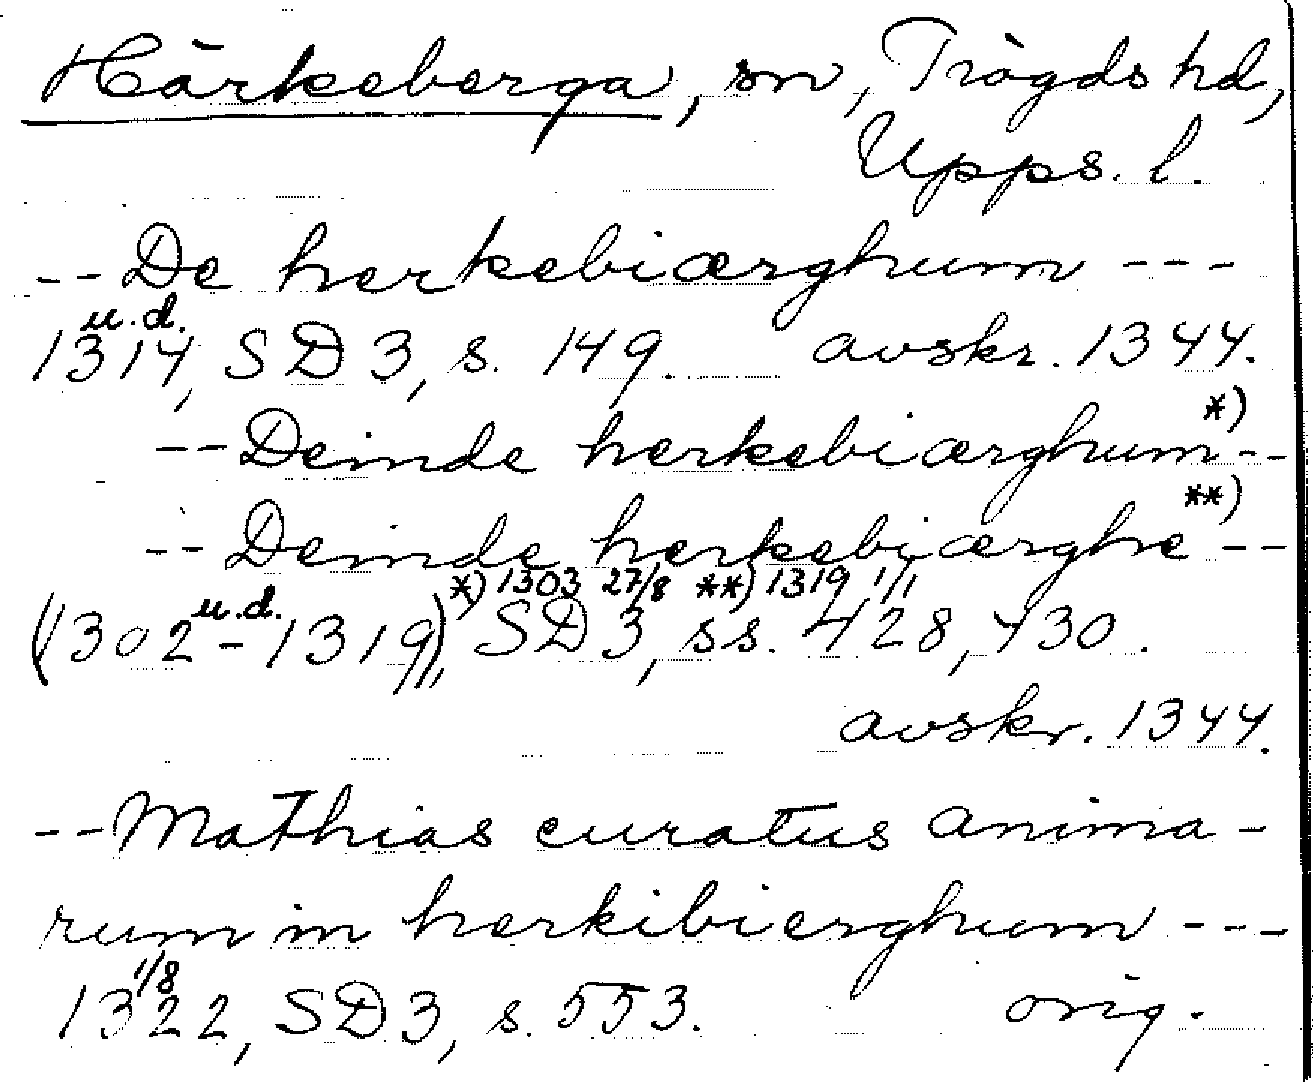 Härkeberga, sn, Trögds hd,
Upps. l.
-- De herkebiærghum ---
u.d.
1314, SD 3, s. 149. avskr. 1344.
*)
-- Deinde herkebiærghum --
**)
-- Deinde herkebiærghe --
*) 1303 27/8 **) 1319 1/1
u.d.
(1302-1319), SD 3, ss. 428, 430.
avskr. 1344.
-- Mathias curatus anima-
rum in herkibierghum ---
1/8
1322, SD 3, s. 553. orig.